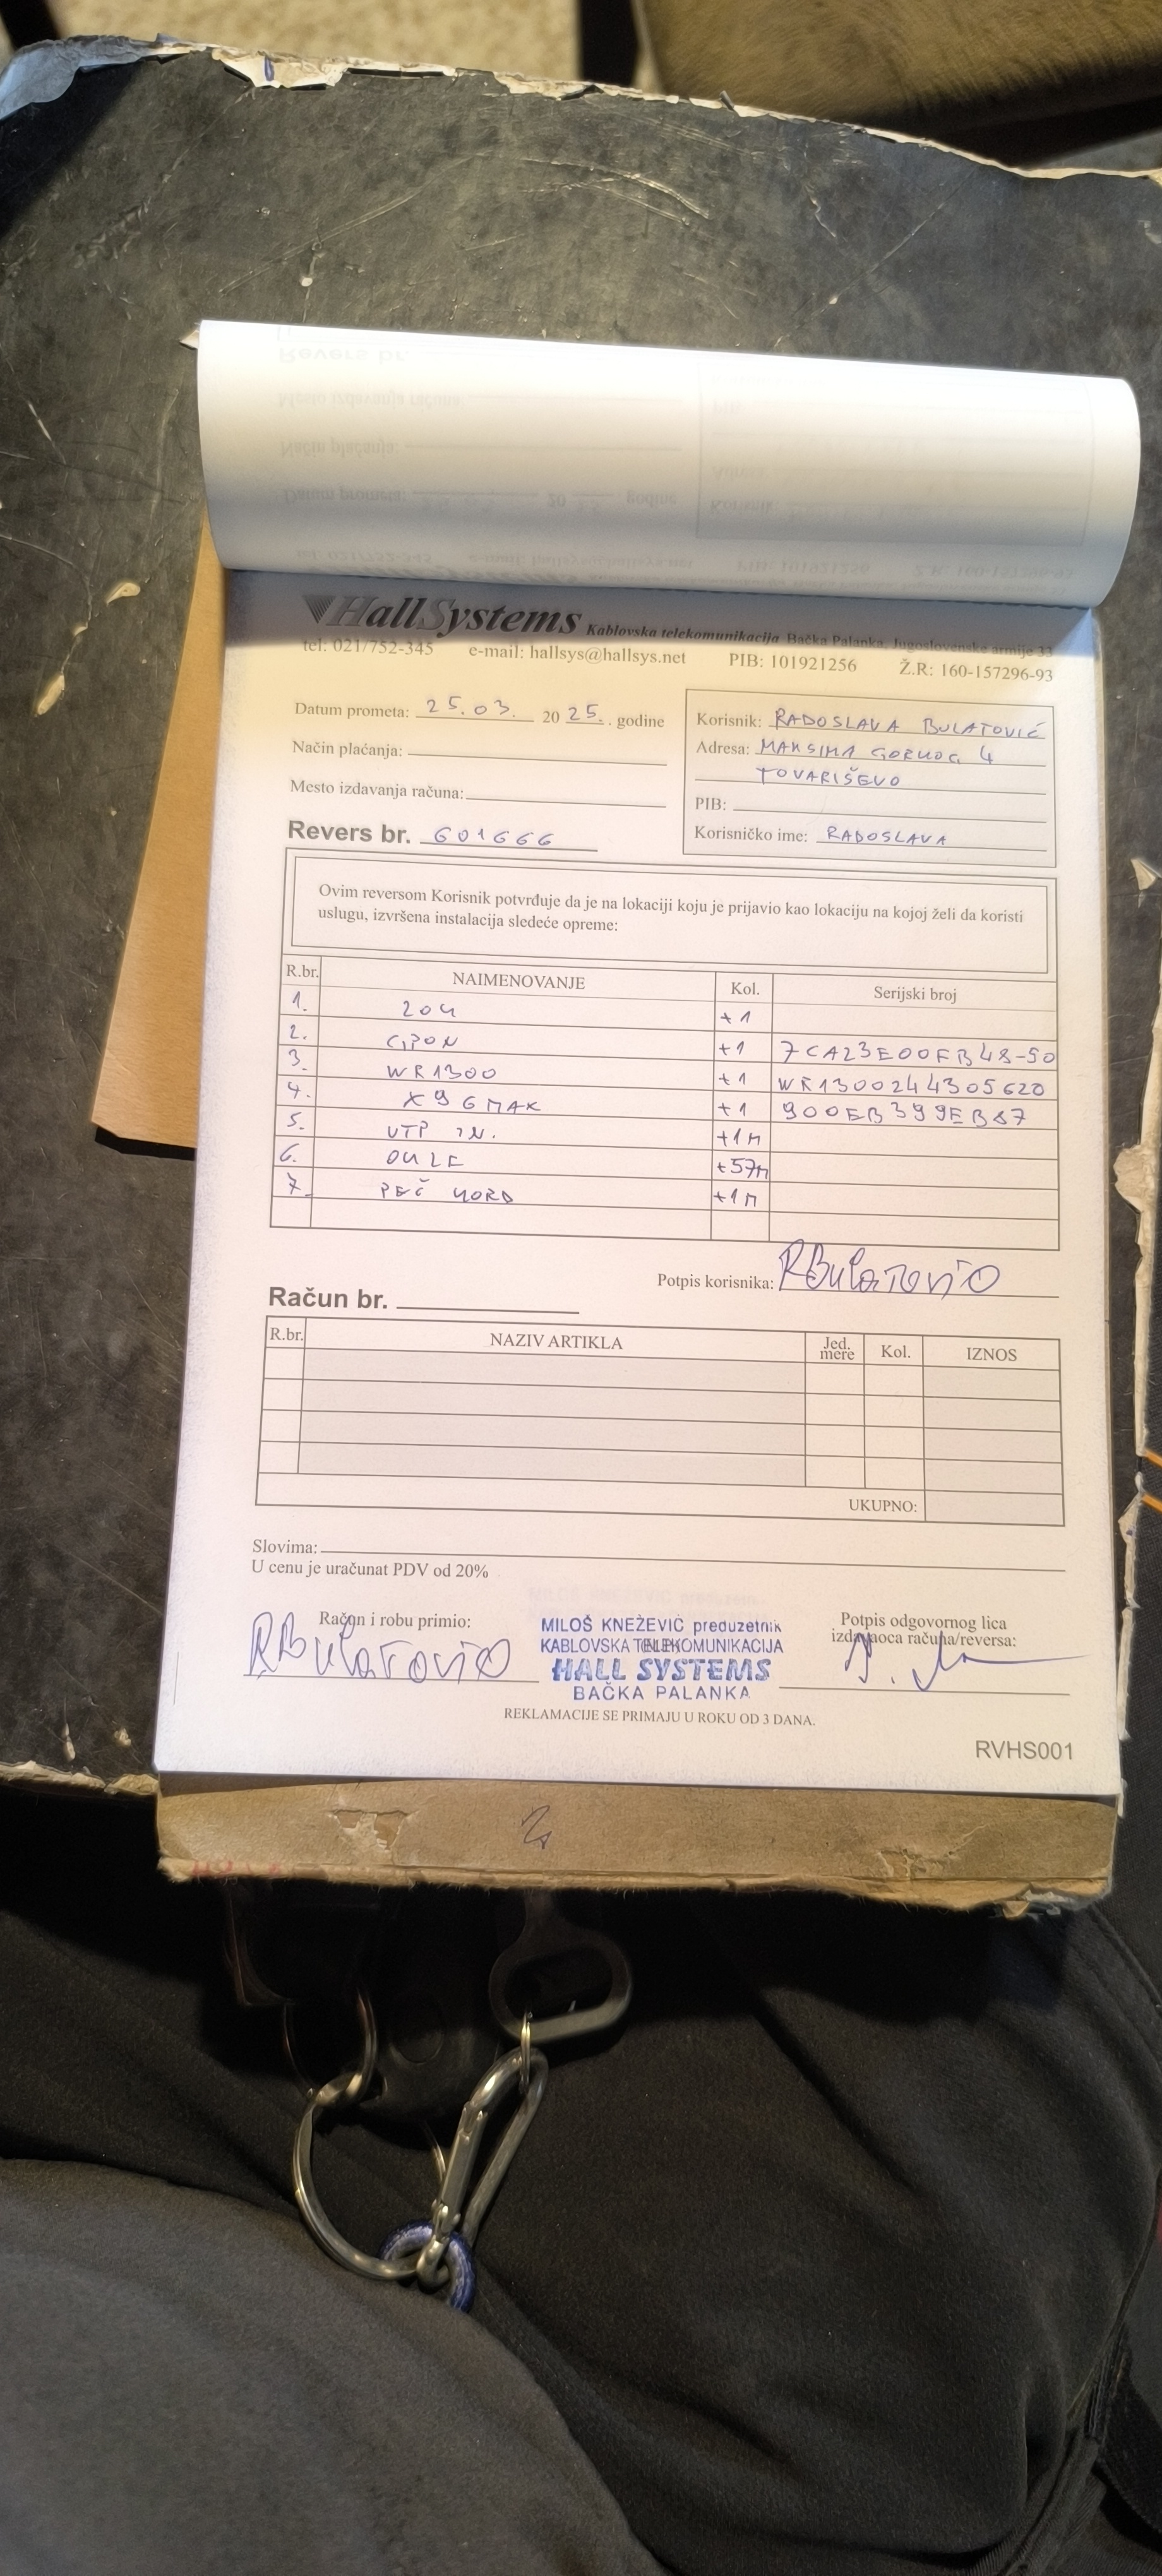 HallSystems Kablovska telekomunikacija Bačka Palanka, Jugoslovenske armije 33
tel: 021/752-345 e-mail: hallsys@hallsys.net PIB: 101921256 Ž.R: 160-157296-93
Datum prometa: 25.03. 20 25. . godine
Način plaćanja:
Mesto izdavanja računa:
Revers br. 601666
Korisnik: RADOSLAVA BULATOVIĆ
Adresa: MAKSIMA GORKOG 4
TOVARIŠEVO
PIB:
Korisničko ime: RADOSLAVA
Ovim reversom Korisnik potvrđuje da je na lokaciji koju je prijavio kao lokaciju na kojoj želi da koristi
uslugu, izvršena instalacija sledeće opreme:
R.br. NAIMENOVANJE Kol. Serijski broj
1. ZOK +1
2. GPON +1 7CA23E00FB48-50
3. WR1300 +1 WR1300244305620
4. X96MAX +1 900EB399EB87
5. UTP +1M
6. +57M
7. PEČ KORD +1M
Potpis korisnika: RBulatović
Račun br.
R.br. NAZIV ARTIKLA Jed. mere Kol. IZNOS
UKUPNO:
Slovima:
U cenu je uračunat PDV od 20%
Račun i robu primio:
RBulatović
MILOŠ KNEŽEVIĆ preduzetnik
KABLOVSKA TELEKOMUNIKACIJA
HALL SYSTEMS
BAČKA PALANKA
Potpis odgovornog lica
izdavaoca računa/reversa:
REKLAMACIJE SE PRIMAJU U ROKU OD 3 DANA.
RVHS001